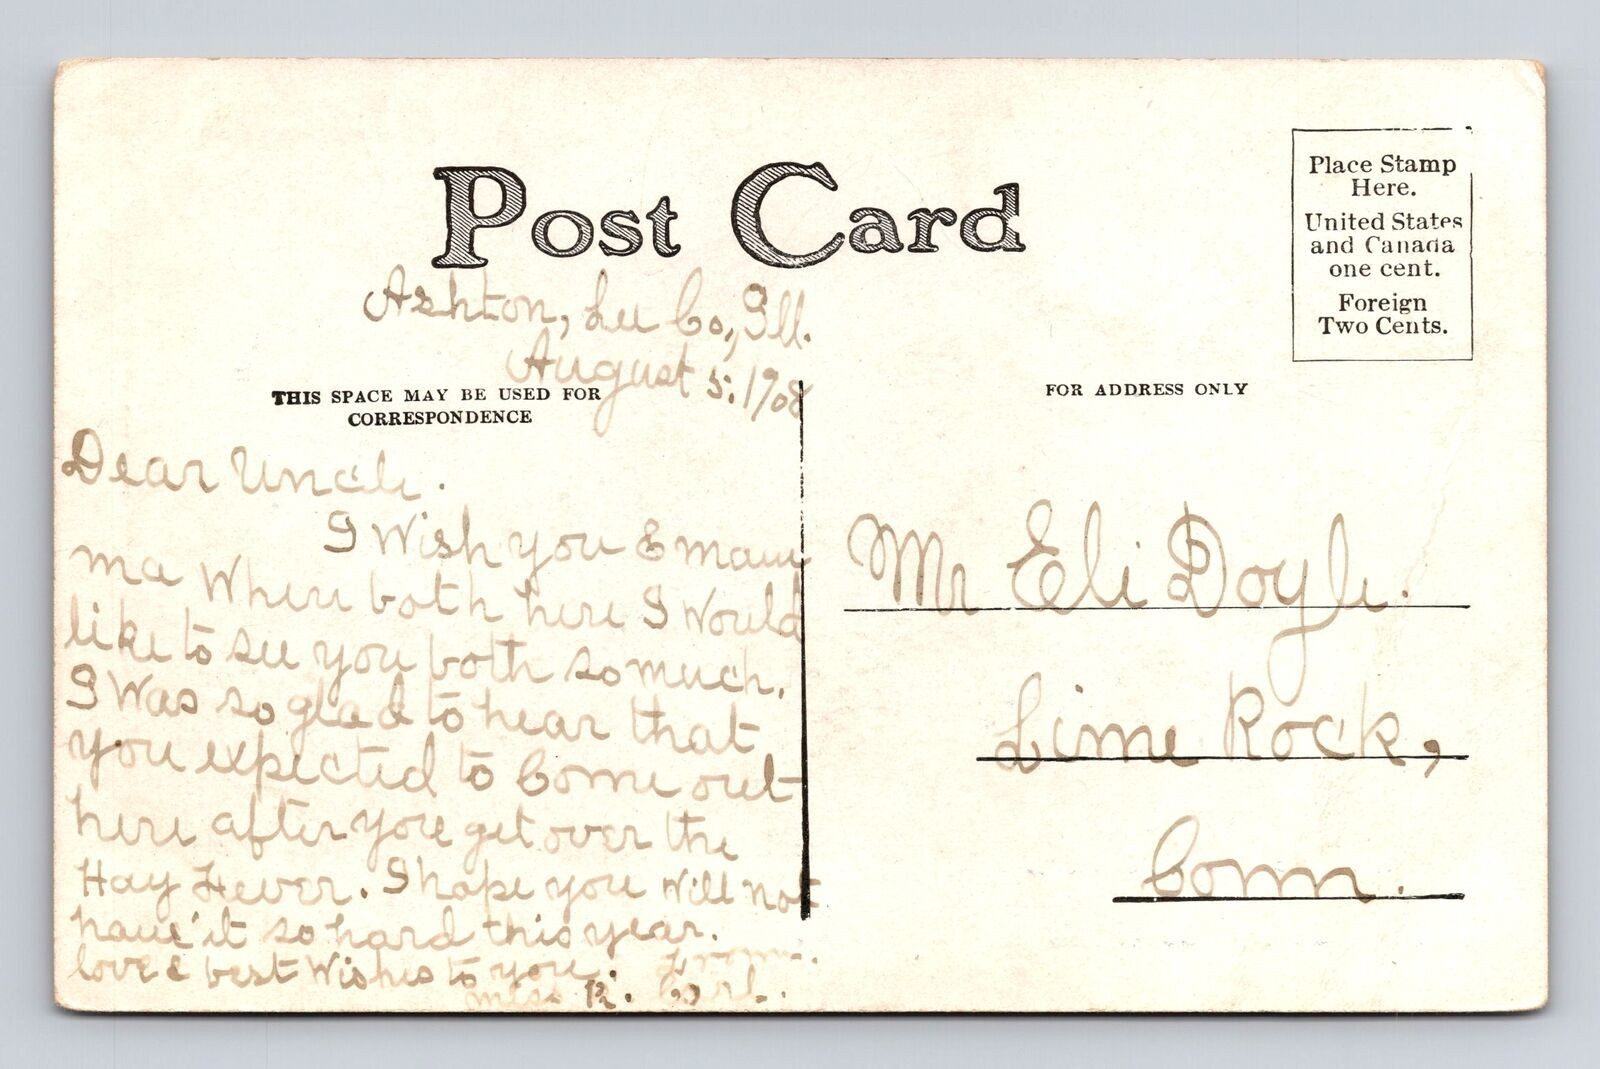 Post Card
Place Stamp
Here.
United States
and Canada
one cent.
Foreign
Two Cents.
Ashton, Lee Co., Ill.
August 5: 1908
THIS SPACE MAY BE USED FOR
CORRESPONDENCE
FOR ADDRESS ONLY
Dear Uncle.
I Wish you & mam
ma Where both here I Would
like to see you both so much.
I Was so glad to hear that
you expected to Come out
here after you get over the
Hay Hever. I hope you Will not
have it so hard this year.
love & best Wishes to you. From.
miss R.
Mr Eli Doyle.
Lime Rock,
Conn.